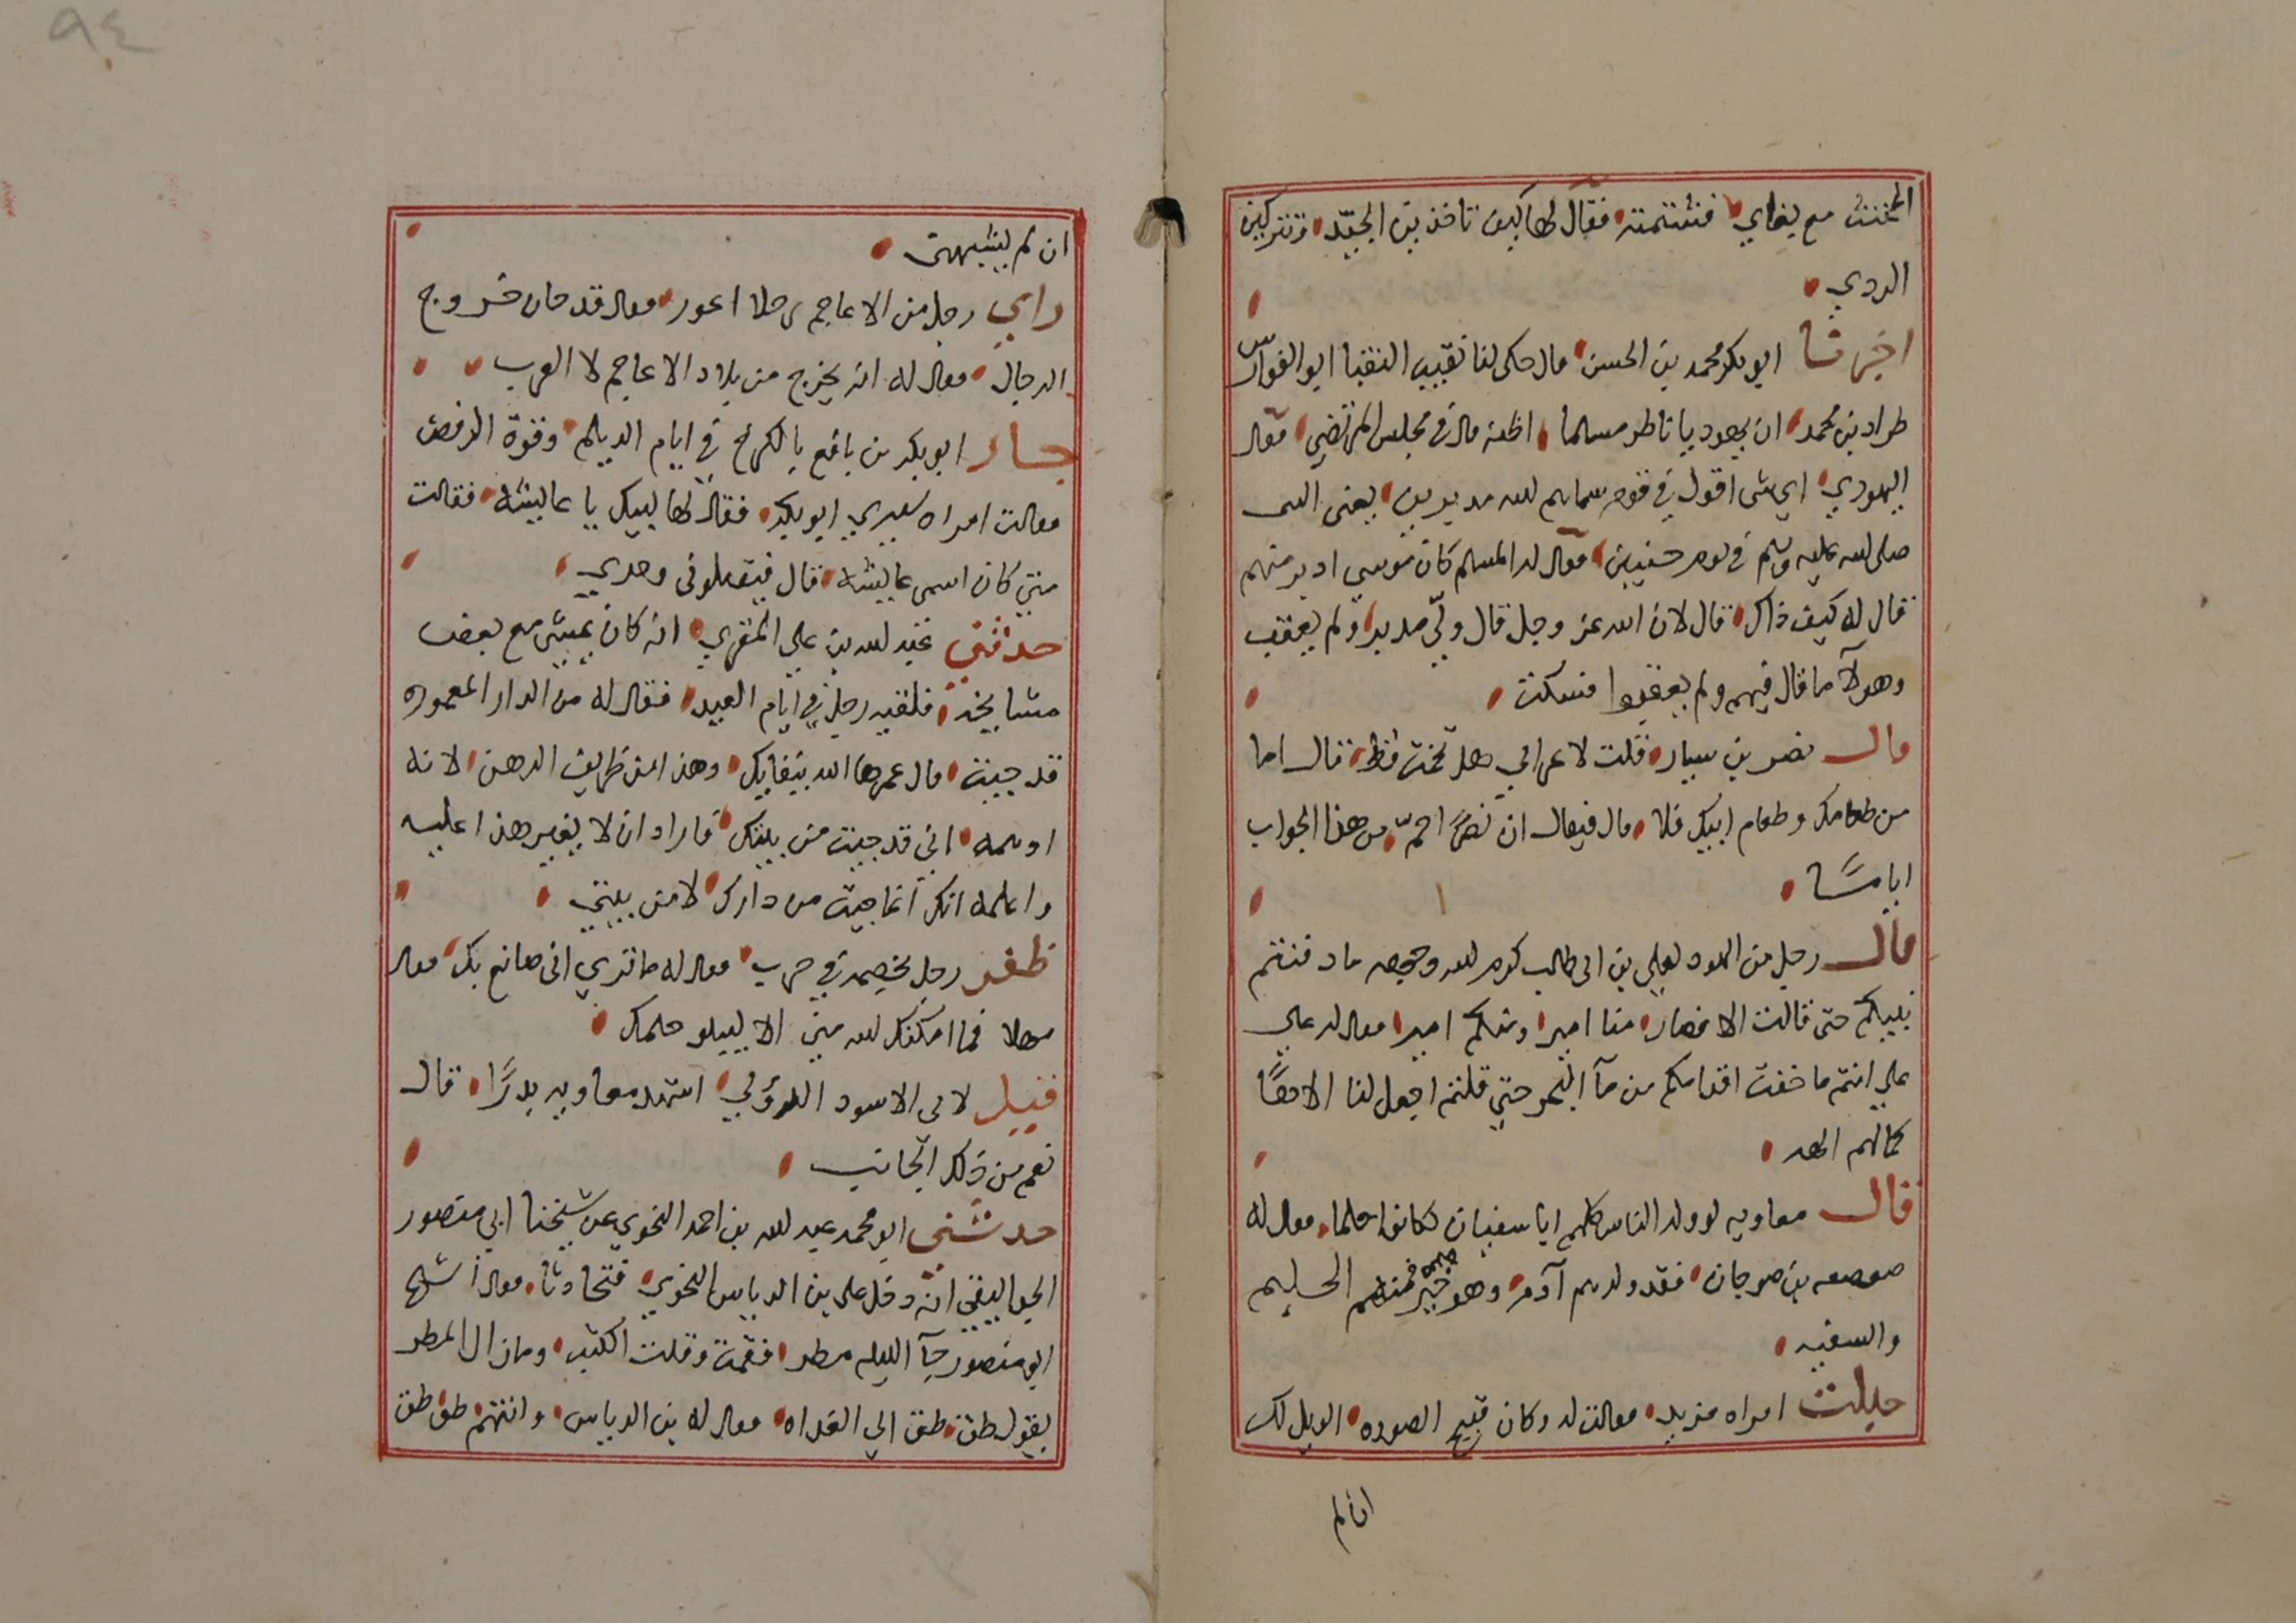 المخنث مع بغاي فشتمته فقال لها كيف تاخذين الجيد وتتركين
الردي
اخبرنا ابو بكر محمد بن الحسن قال حكى لنا نقيب النقبا ابو الفوارس
طراد بن محمد ان يهوديا ناظر مسلما اظنه قال في مجلس المرتضي فقال
اليهودي اي شي اقول في قوم سماهم الله مدبرين يعني النبي
صلى الله عليه وسلم في يوم حنين فقال له المسلم كان موسي ادبر منهم
قال له كيف ذاك قال لان الله عز وجل قال ولّي مدبرا ولم يعقب
وهولآ ما قال فيهم ولم يعقبوا فسكت
قال نصر بن سيار قلت لاعرابي هل تخمت قط قال اما
من طعامك وطعام ابيك فلا قال فيقال ان نصرًا حمّ من هذا الجواب
اياما
قال رجل من اليهود لعلي بن ابي طالب كرم الله وجهه ما دفنتم
نبيكم حتى قالت الانصار منا امير ومنكم امير فقال له علي
علي انتم ما جفت اقدامكم من مآ البحر حتي قلتم اجعل لنا الاها
كما لهم الهه
قال معاويه لو ولد الناس كلهم ابا سفيان كانوا حلما فقال له
صعصعه بن صوحان فقد ولدهم آدم وهو خير منه فمنهم الحليم
والسفيه
جليت امراه مزبد فقالت له وكان قبيح الصوره الويل لك
ان لم
ان لم يشبهني
راي رجل من الاعاجم رجلا اعور فقال قد حان خروج
الدجال فقال له انه يخرج من بلاد الاعاجم لا العرب
جاز ابو بكر بن بانع بالكرخ في ايام الديلم وقوة الرفض
فقالت امراه سيدي ابو بكر فقال لها لبيك يا عايشه فقالت
متي كان اسمي عايشه قال فيقتلوني وحدي
حدثني عبد الله بن علي المقري انه كان يمشي مع بعض
مشايخه فلقيه رجل في ايام العيد فقال له من الدار المعموره
قد جيت قال عمرها الله ببقايك وهذا من ظريف الذهن لانه
اوهمه اني قد جيت من بيتك فاراد ان لا يغير هذا عليه
واعلمه انك انما جيت من دارك لا من بيتي
ظفر رجل بخصمه في حرب فقال له ما تري اني صانع بك فقال
مهلا فما امكنك الله مني الا ليبلو حلمك
قيل لابي الاسود الدؤلي اشهد معاويه بدرًا قال
نعم من ذلك الجانب
حدثني ابو محمد عبد الله بن احمد النحوي عن شيخنا ابي منصور
الجواليقي انّه دخل علي بن الدباس النحوي فتحادثا فقال الشيخ
ابو منصور جآ الليله مطر فقمت وقلت اكتب وما زال المطر
يقول طق طق الي الغداه فقال له بن الدباس وانتم طق طق